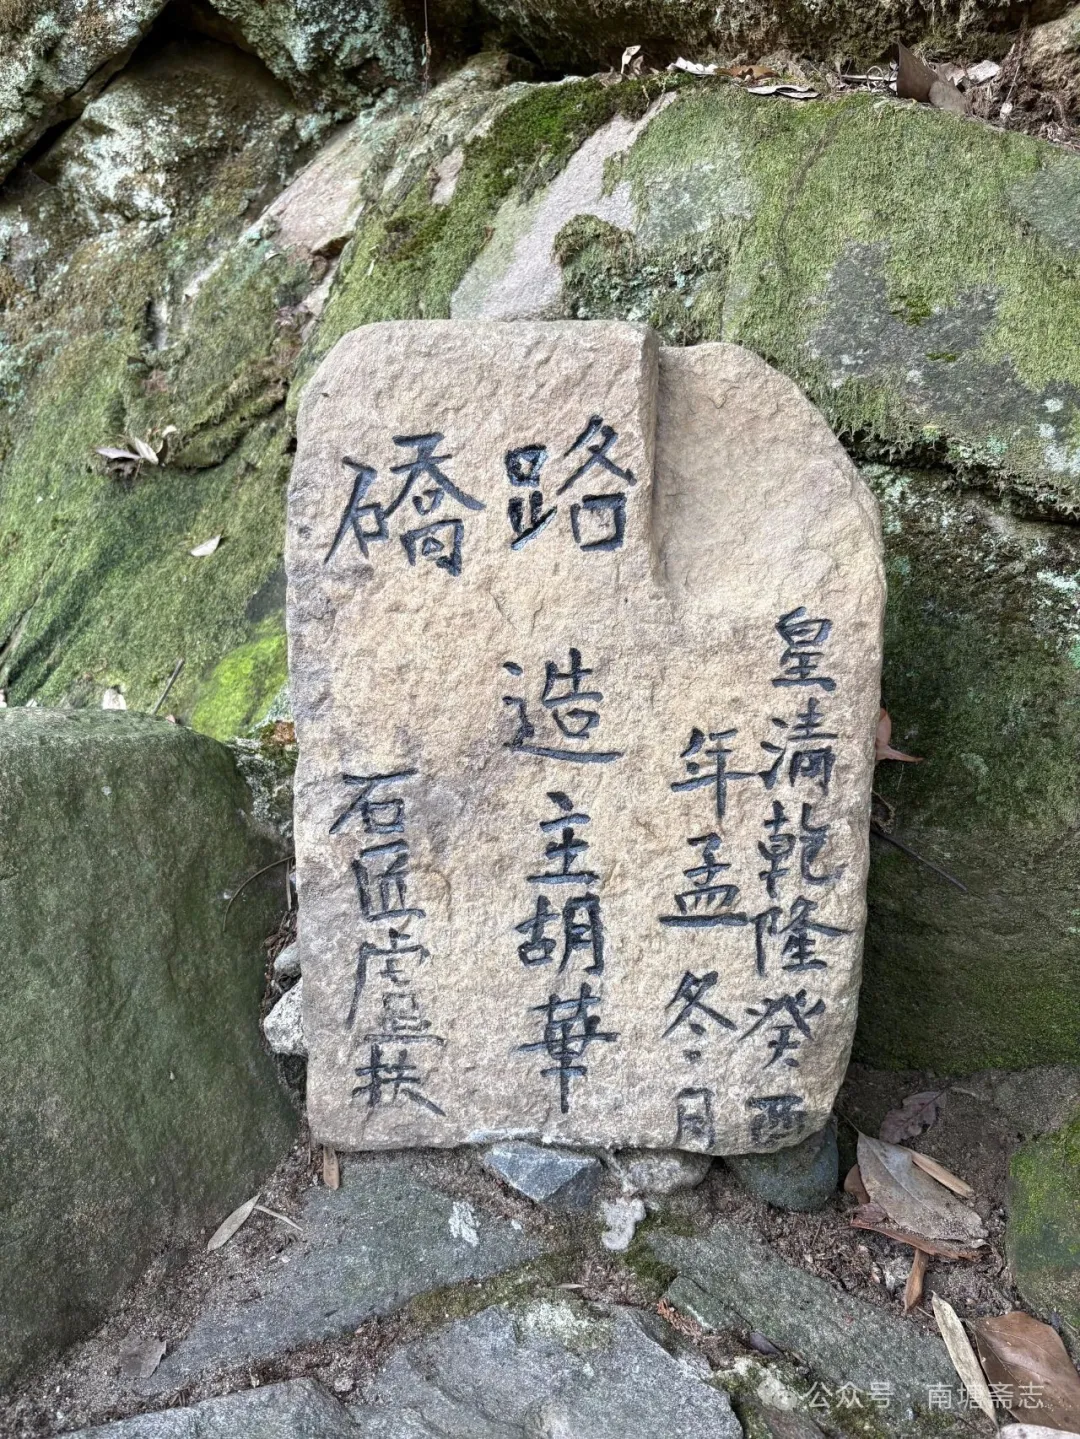 路礄
皇清乾隆癸酉
年孟冬月
造主胡華
石匠盧扶
公众号 · 南塘斋志